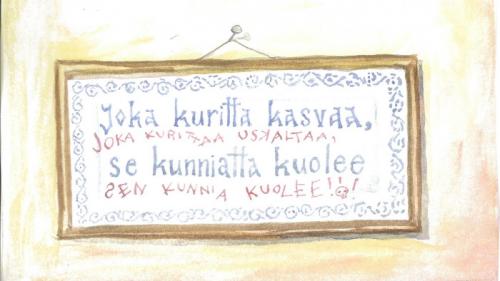 Joka kuritta kasvaa,
JOKA KURITTAA USKALTAA,
se kunniatta kuolee
SEN KUNNIA KUOLEE!!!